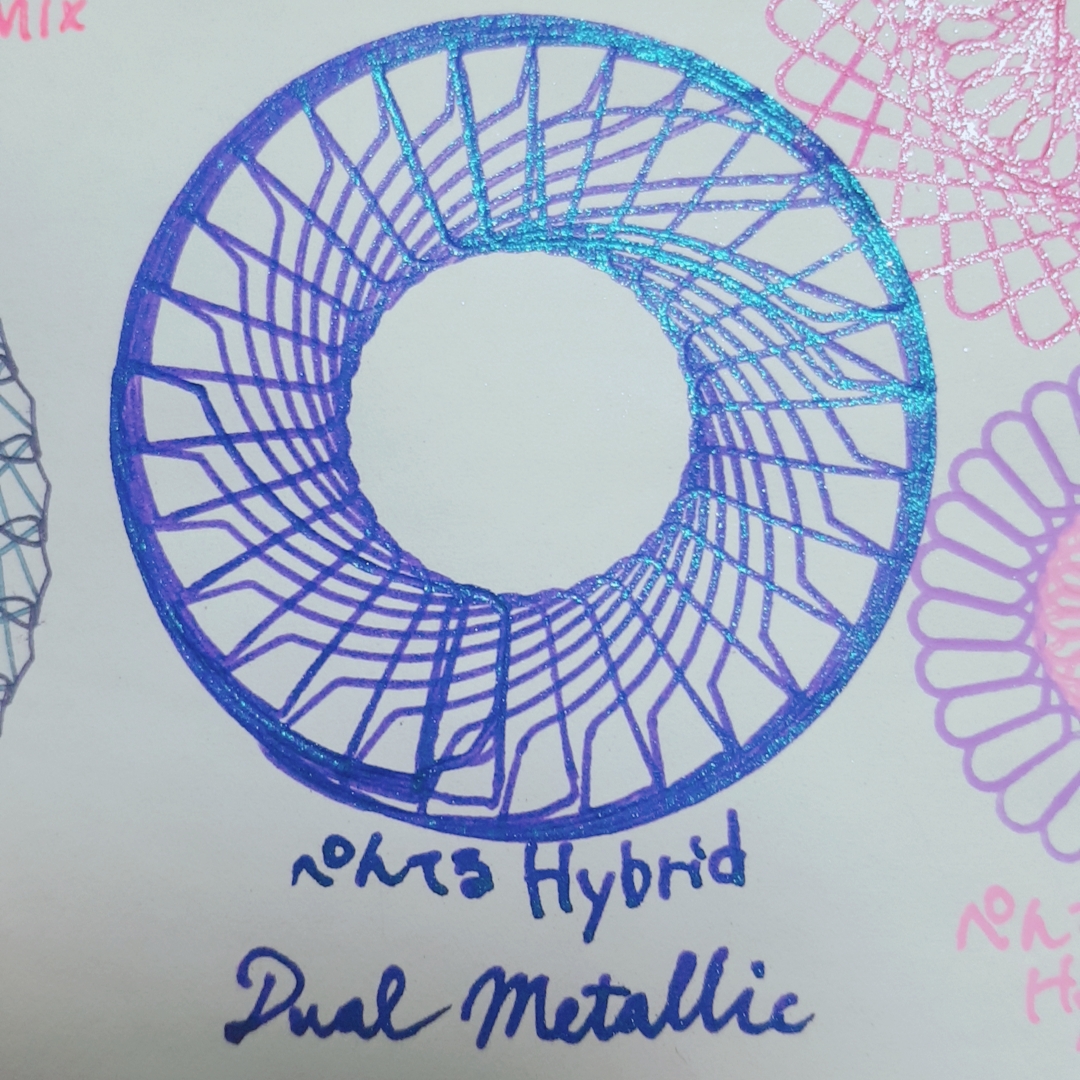 Mix
ぺんてる Hybrid
Dual Metallic
ぺんて
H